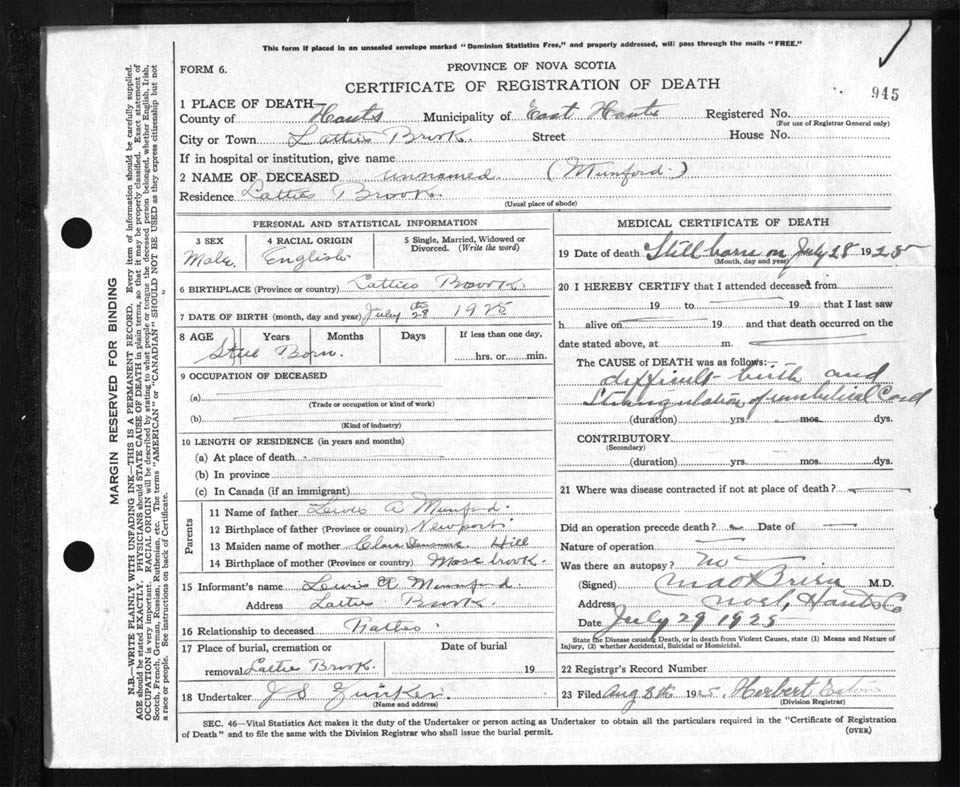 This form if placed in an unsealed envelope marked "Dominion Statistics Free," and properly addressed, will pass through the mails "FREE."
FORM 6.
PROVINCE OF NOVA SCOTIA
CERTIFICATE OF REGISTRATION OF DEATH
945
1 PLACE OF DEATH—
County of Hants Municipality of East Hants Registered No.
(For use of Registrar General only)
City or Town Latties Brook Street House No.
If in hospital or institution, give name
2 NAME OF DECEASED unnamed (Munford)
Residence Latties Brook
(Usual place of abode)
PERSONAL AND STATISTICAL INFORMATION
3 SEX
Male
4 RACIAL ORIGIN
English
5 Single, Married, Widowed or Divorced. (Write the word)
6 BIRTHPLACE (Province or country) Latties Brook
7 DATE OF BIRTH (month, day and year) July 28th 1925
8 AGE Years Months Days If less than one day,
Still Born. hrs. or min.
9 OCCUPATION OF DECEASED
(a)
(Trade or occupation or kind of work)
(b)
(Kind of industry)
10 LENGTH OF RESIDENCE (in years and months)
(a) At place of death
(b) In province
(c) In Canada (if an immigrant)
Parents
11 Name of father Lewis A Munford.
12 Birthplace of father (Province or country) Newport
13 Maiden name of mother Clara Hill
14 Birthplace of mother (Province or country) Mose brook
15 Informant's name Lewis A Munford.
Address Latties Brook.
16 Relationship to deceased
17 Place of burial, cremation or Date of burial
removal Lattie Brook. 19
18 Undertaker J S
(Name and address)
MEDICAL CERTIFICATE OF DEATH
19 Date of death Still born on July 28 1925
(Month, day and year)
20 I HEREBY CERTIFY that I attended deceased from
19 to 19 that I last saw
h alive on 19 and that death occurred on the
date stated above, at m.
The CAUSE OF DEATH was as follows:—
difficult birth and
Strangulation of umbilical Cord
(duration) yrs. mos. dys.
CONTRIBUTORY
(Secondary)
(duration) yrs. mos. dys.
21 Where was disease contracted if not at place of death?
Did an operation precede death? Date of
Nature of operation
Was there an autopsy? no
(Signed) M.D.
Address Noel, Hants Co
Date July 29 1925
State the Disease causing Death, or in death from Violent Causes, state (1) Means and Nature of Injury, (2) whether Accidental, Suicidal or Homicidal.
22 Registrar's Record Number
23 Filed Aug 8th 1925 Herbert
(Division Registrar)
SEC. 46—Vital Statistics Act makes it the duty of the Undertaker or person acting as Undertaker to obtain all the particulars required in the "Certificate of Registration
of Death" and to file the same with the Division Registrar who shall issue the burial permit. (OVER)
MARGIN RESERVED FOR BINDING
N.B.—WRITE PLAINLY WITH UNFADING INK—THIS IS A PERMANENT RECORD. Every item of information should be carefully supplied.
AGE should be stated EXACTLY. PHYSICIANS should STATE CAUSE OF DEATH in plain terms, so that it may be properly classified. Exact statement of
OCCUPATION is very important. RACIAL ORIGIN will be described by stating to what people or tongue the deceased person belonged, whether English, Irish,
Scotch, French, German, Russian, Ruthenian, etc. The terms "AMERICAN" or "CANADIAN" SHOULD NOT BE USED as they express citizenship but not
a race or people. See instructions on back of Certificate.